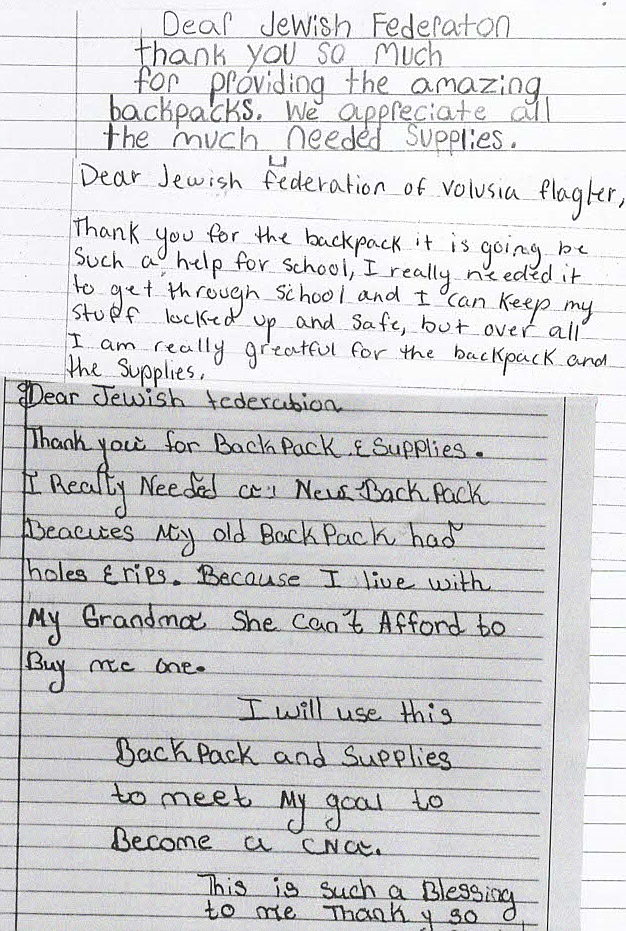 Dear Jewish Federaton
thank you so much
for providing the amazing
backpacks. We appreciate all
the much needed supplies.
Dear Jewish federation of volusia flagler,
Thank you for the backpack it is going be
such a help for school, I really needed it
to get through school and I can keep my
stuff locked up and safe, but over all
I am really greatful for the backpack and
the supplies.
Dear Jewish federation
Thank you for BackPack & Supplies.
I Really Needed a New BackPack
Beacues My old BackPack had
holes & rips. Because I live with
My Grandma She Can't Afford to
Buy me one.
I will use this
BackPack and Supplies
to meet My goal to
Become a CNa.
This is such a Blessing
to me Thank y so